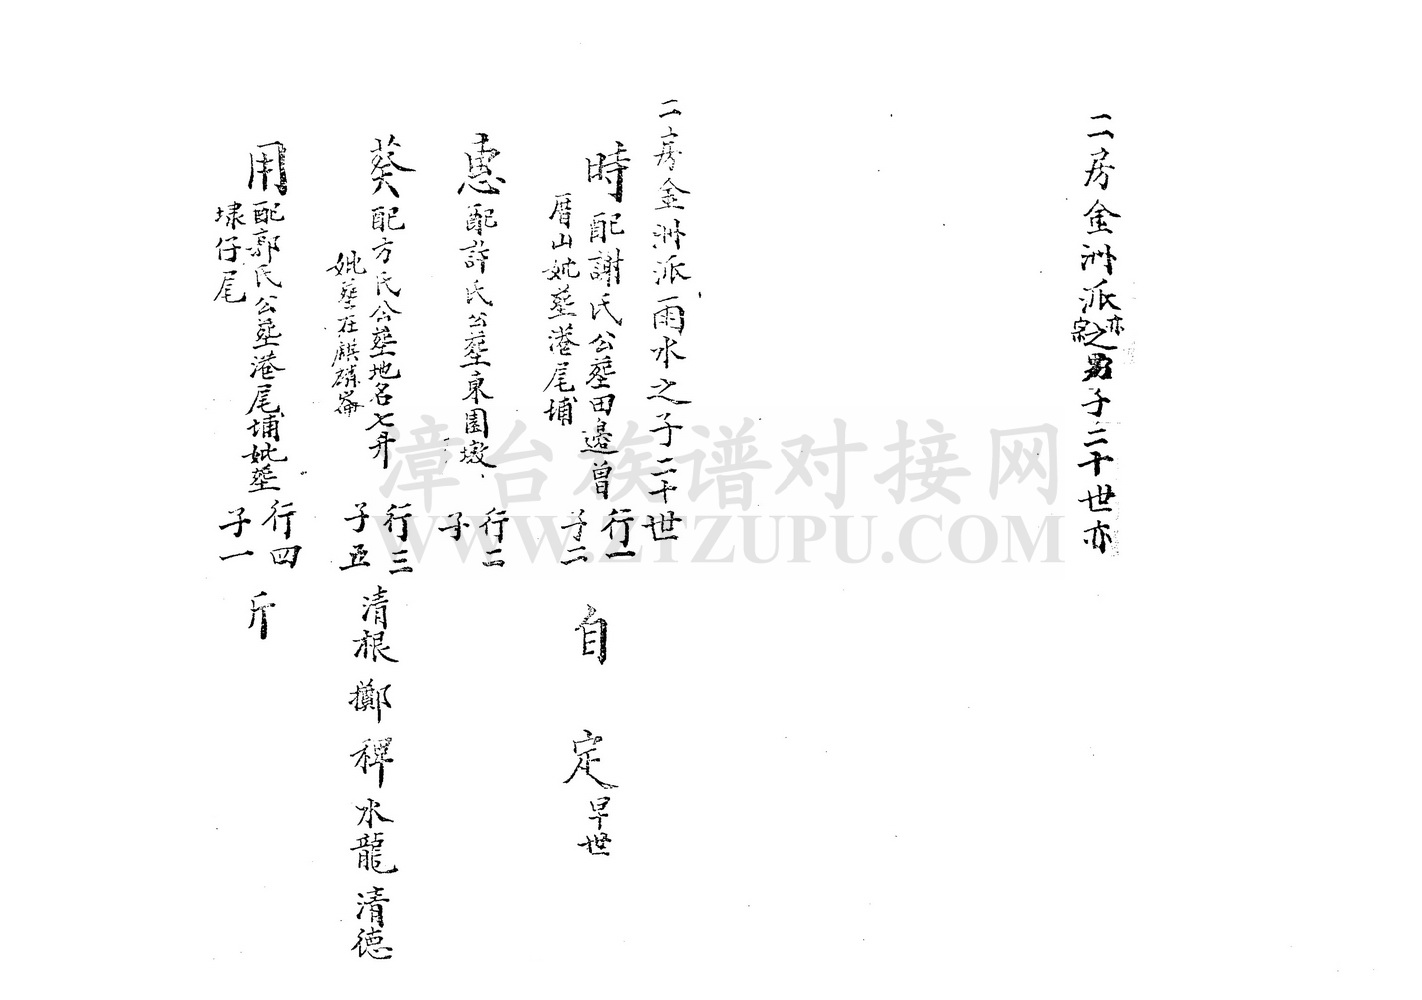 二房金洲派亦宗之男子二十世亦
二房金洲派雨水之子二十世
時配謝氏公塟田邊曾
厝山妣塟港尾埔
行一
子二
自
定早世
惠配許氏公塟東園墩
行二
子
葵配方氏公塟地名七井
妣塟在麒磷崙
行三
子五
清根
擲
稗
水龍
清德
用配郭氏公塟港尾埔妣塟
埭仔尾
行四
子一
斤
漳台族谱对接网
WWW.ZTZUPU.COM